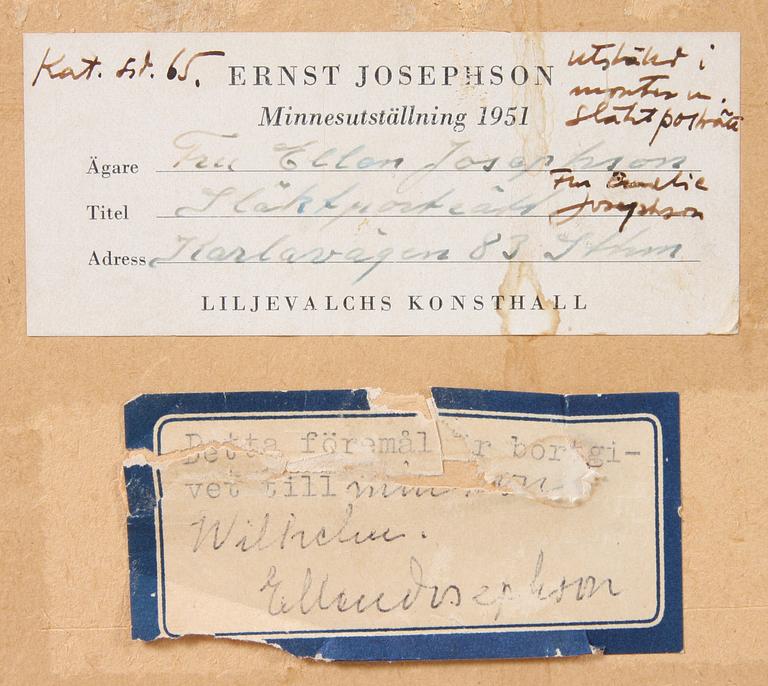 Kat. sid. 65.
ERNST JOSEPHSON
Minnesutställning 1951
utställd i
monter m.
släktporträtt
Ägare Fru Ellen Josephson
Titel Släktporträtt
Fru Emelie
Josephson
Adress Karlavägen 83 Sthm
LILJEVALCHS KONSTHALL
Detta föremål är bortgi-
vet till min son
Wilhelm.
Ellen Josephson